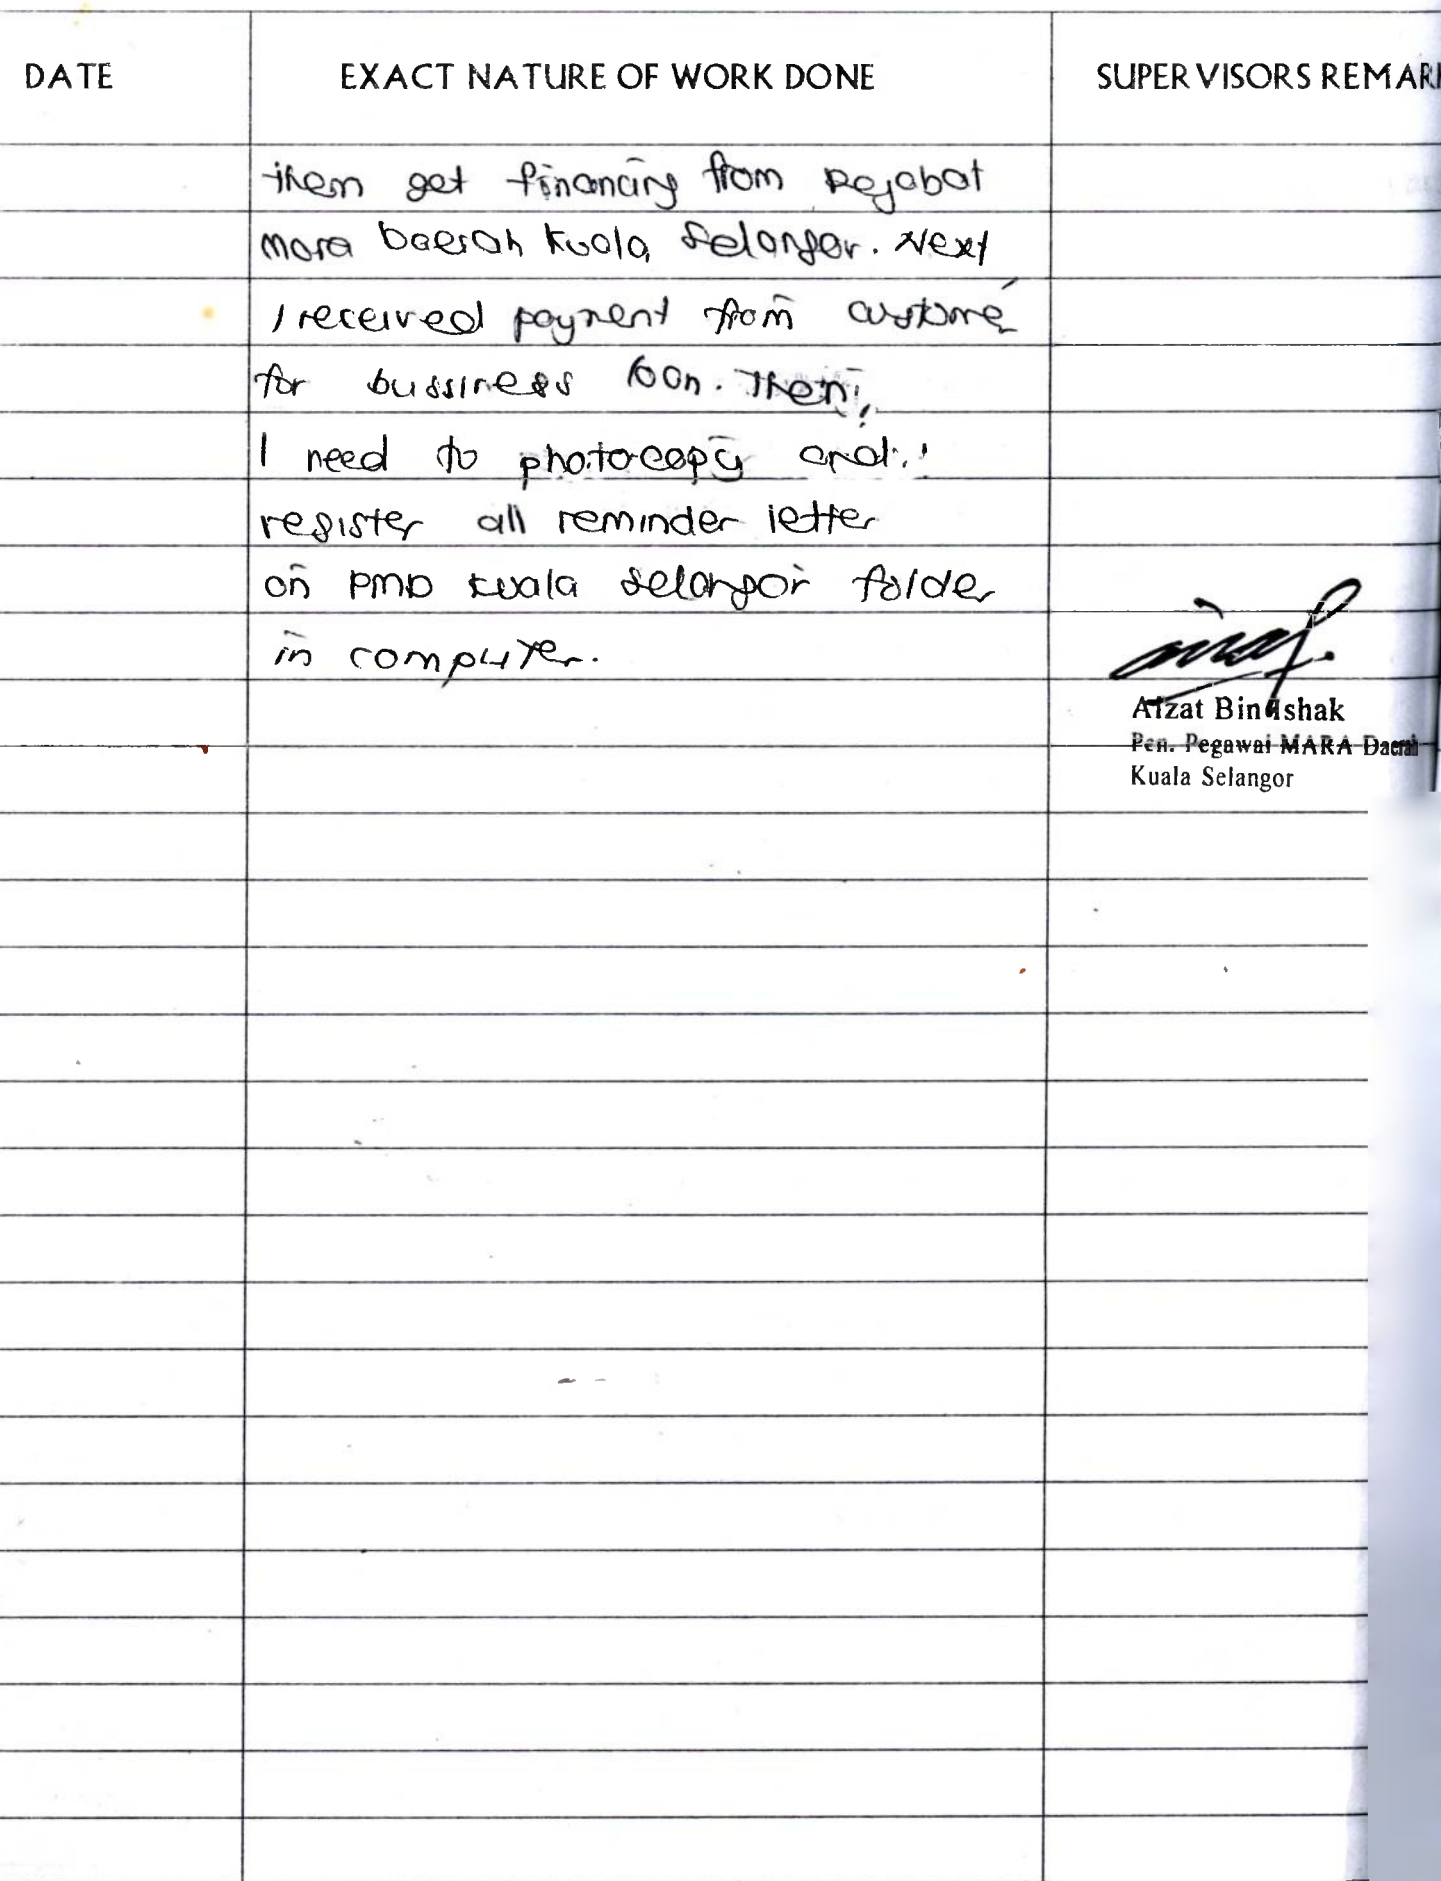 DATE EXACT NATURE OF WORK DONE SUPERVISORS REMAR
them get financing from Pejabat
Mara Daerah Kuala Selangor. Next
I received payment from custome
for bussiness loan. Then,
I need to photocopy and
register all reminder letter
on PMD Kuala Selangor folder
in computer.
Aizat Bin Ishak
Pen. Pegawai MARA Daerah
Kuala Selangor